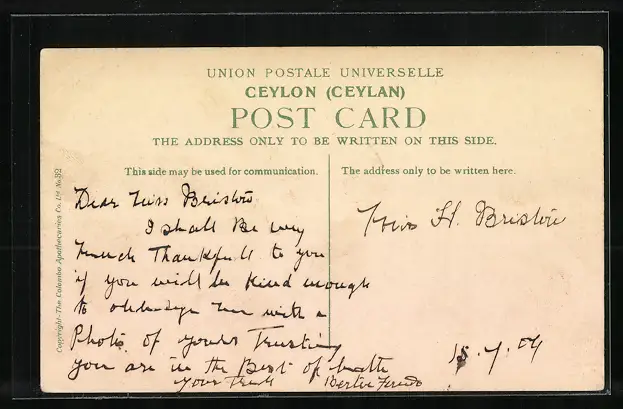 UNION POSTALE UNIVERSELLE
CEYLON (CEYLAN)
POST CARD
THE ADDRESS ONLY TO BE WRITTEN ON THIS SIDE.
This side may be used for communication.
The address only to be written here.
Copyright—The Colombo Apothecaries Co. Ld No. 32
Dear Miss Bristow
I shall Be very
much Thankfull to you
if you will be Kind enough
to me with a
Photo of yours Trusting
you are in the Best of health
yours
Miss H. Bristow